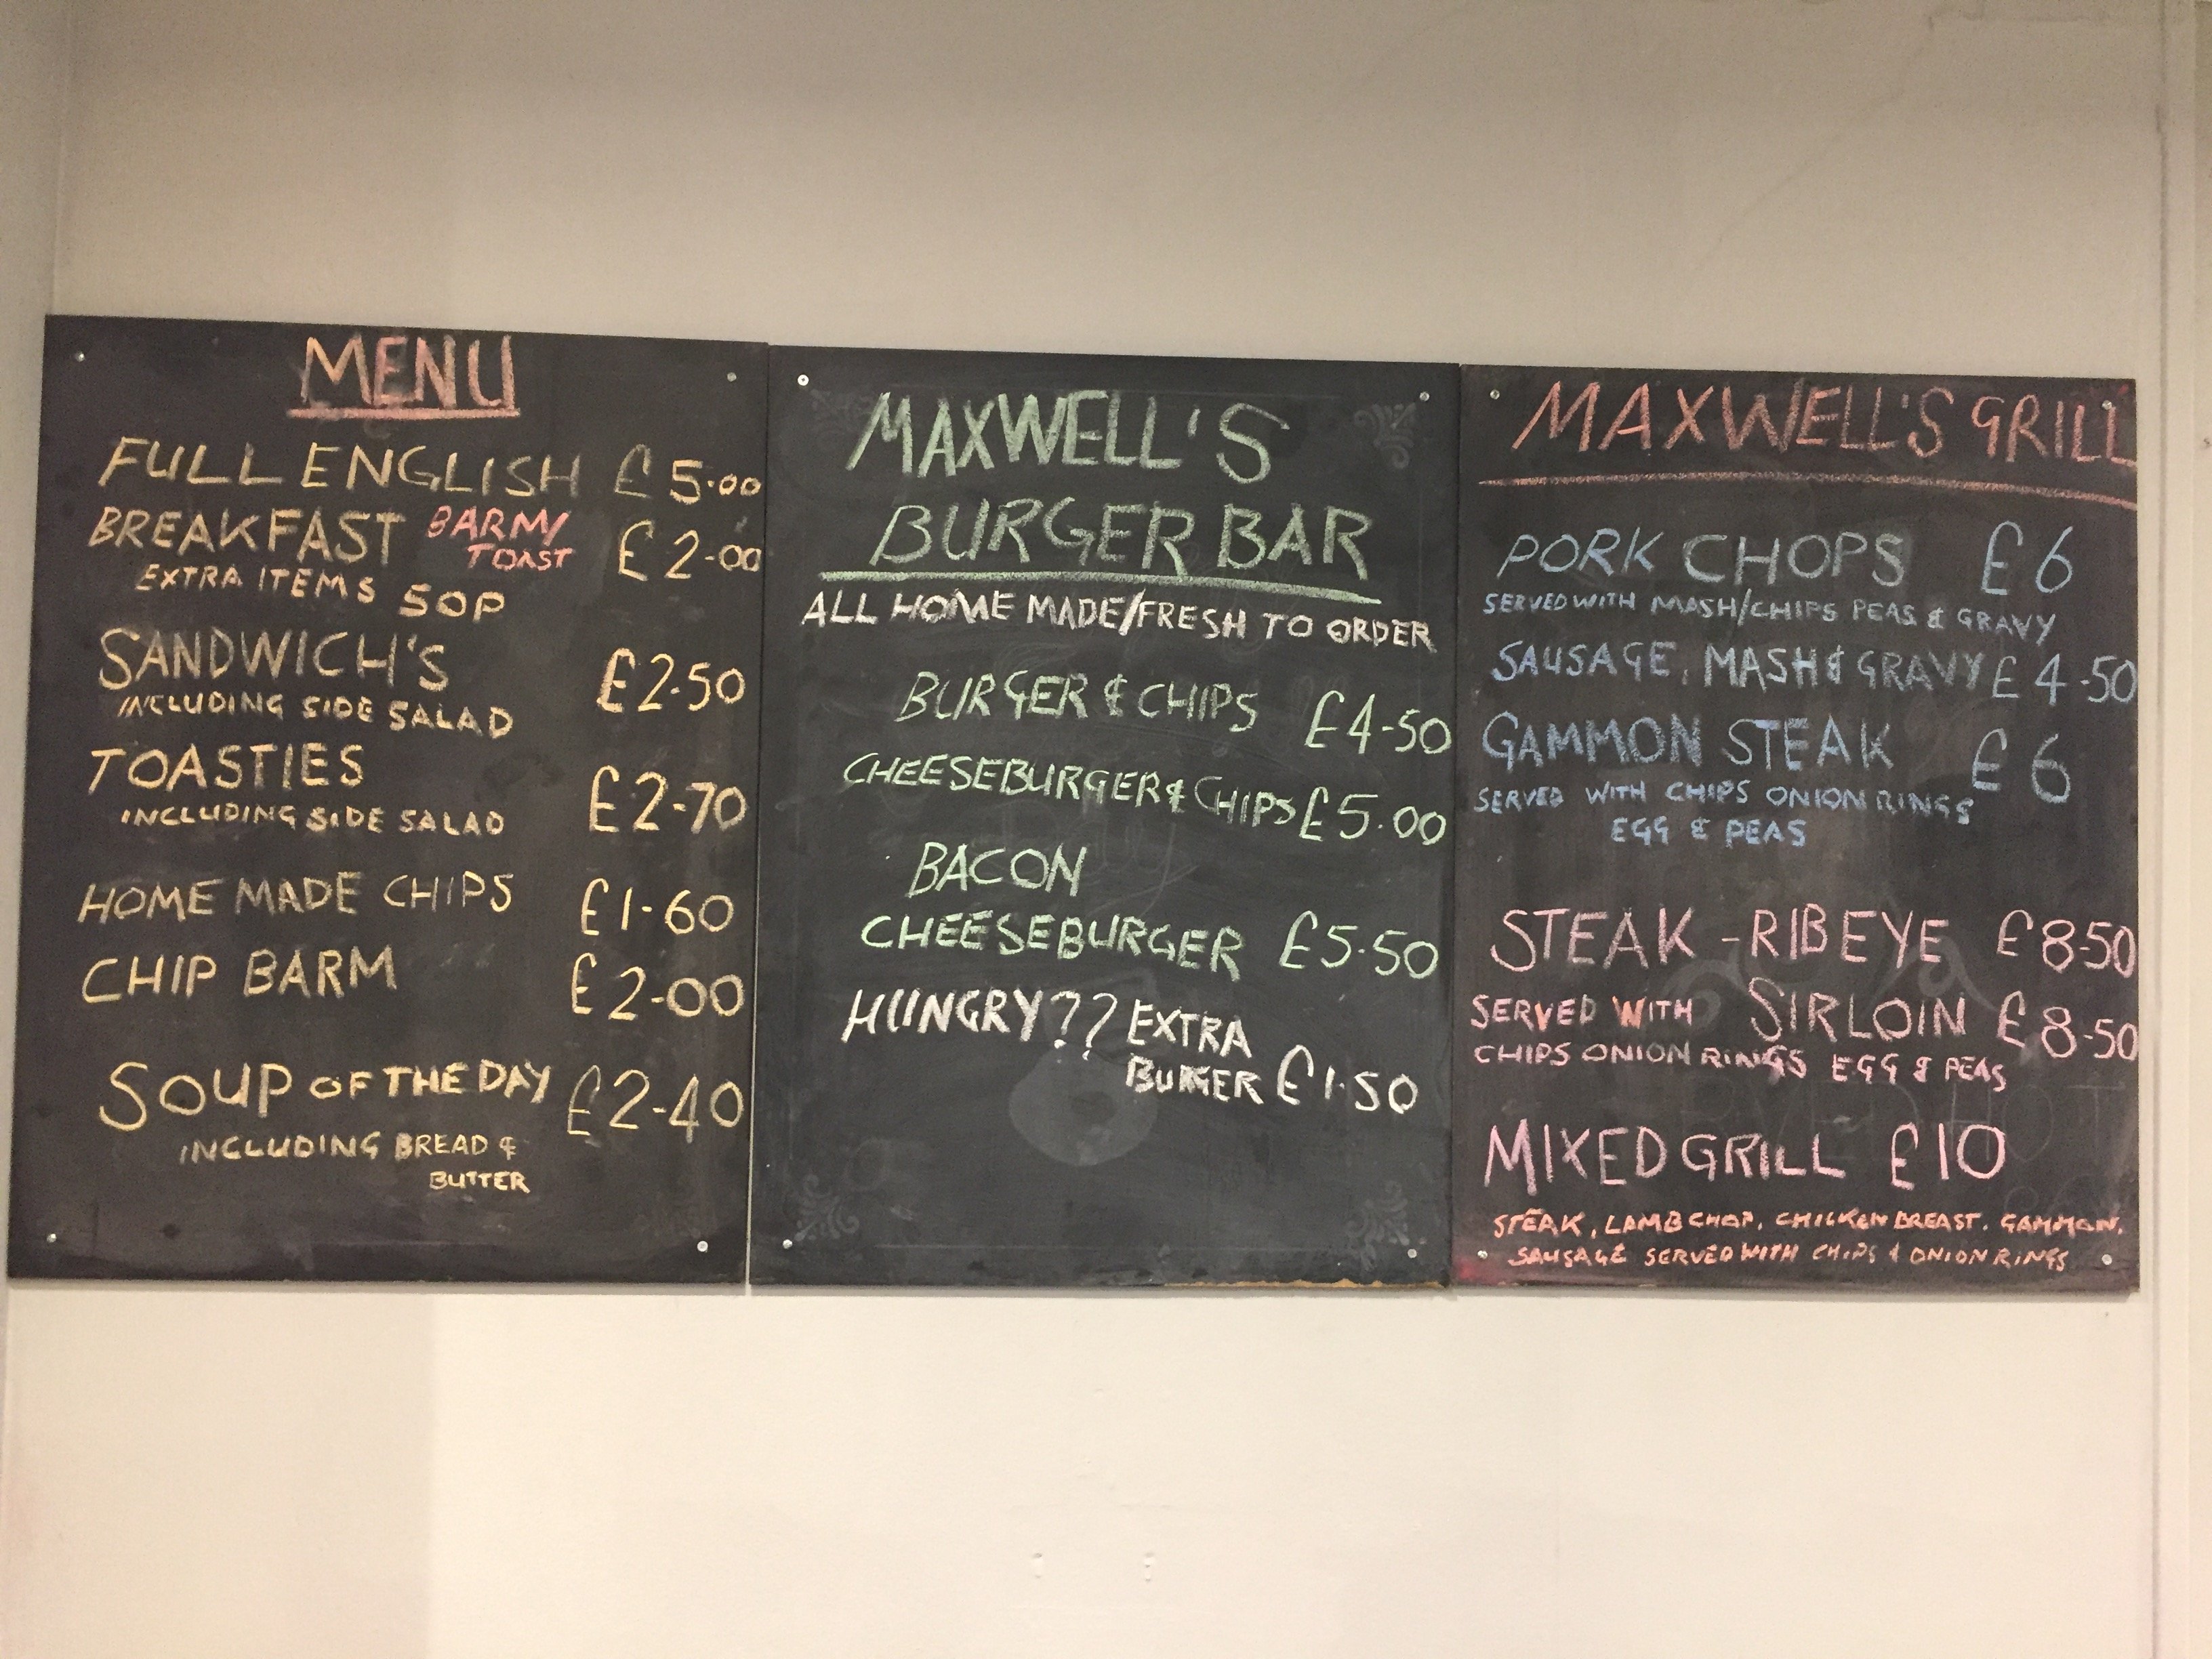 MENU
FULL ENGLISH £5.00
BREAKFAST BARM/ TOAST £2-00
EXTRA ITEMS 50P
SANDWICH'S £2.50
INCLUDING SIDE SALAD
TOASTIES £2-70
INCLUDING SIDE SALAD
HOME MADE CHIPS £1-60
CHIP BARM £2-00
SOUP OF THE DAY £2-40
INCLUDING BREAD &
BUTTER
MAXWELL'S
BURGER BAR
ALL HOME MADE/FRESH TO ORDER
BURGER & CHIPS £4-50
CHEESEBURGER & CHIPS £5.00
BACON
CHEESEBURGER £5.50
HUNGRY?? EXTRA
BURGER £1.50
MAXWELL'S GRILL
PORK CHOPS £6
SERVED WITH MASH/CHIPS PEAS & GRAVY
SAUSAGE, MASH & GRAVY £4-50
GAMMON STEAK £6
SERVED WITH CHIPS ONION RINGS
EGG & PEAS
STEAK - RIBEYE £8-50
SERVED WITH SIRLOIN £8-50
CHIPS ONION RINGS EGG & PEAS
MIXED GRILL £10
STEAK, LAMB CHOP, CHICKEN BREAST. GAMMON,
SAUSAGE SERVED WITH CHIPS & ONION RINGS